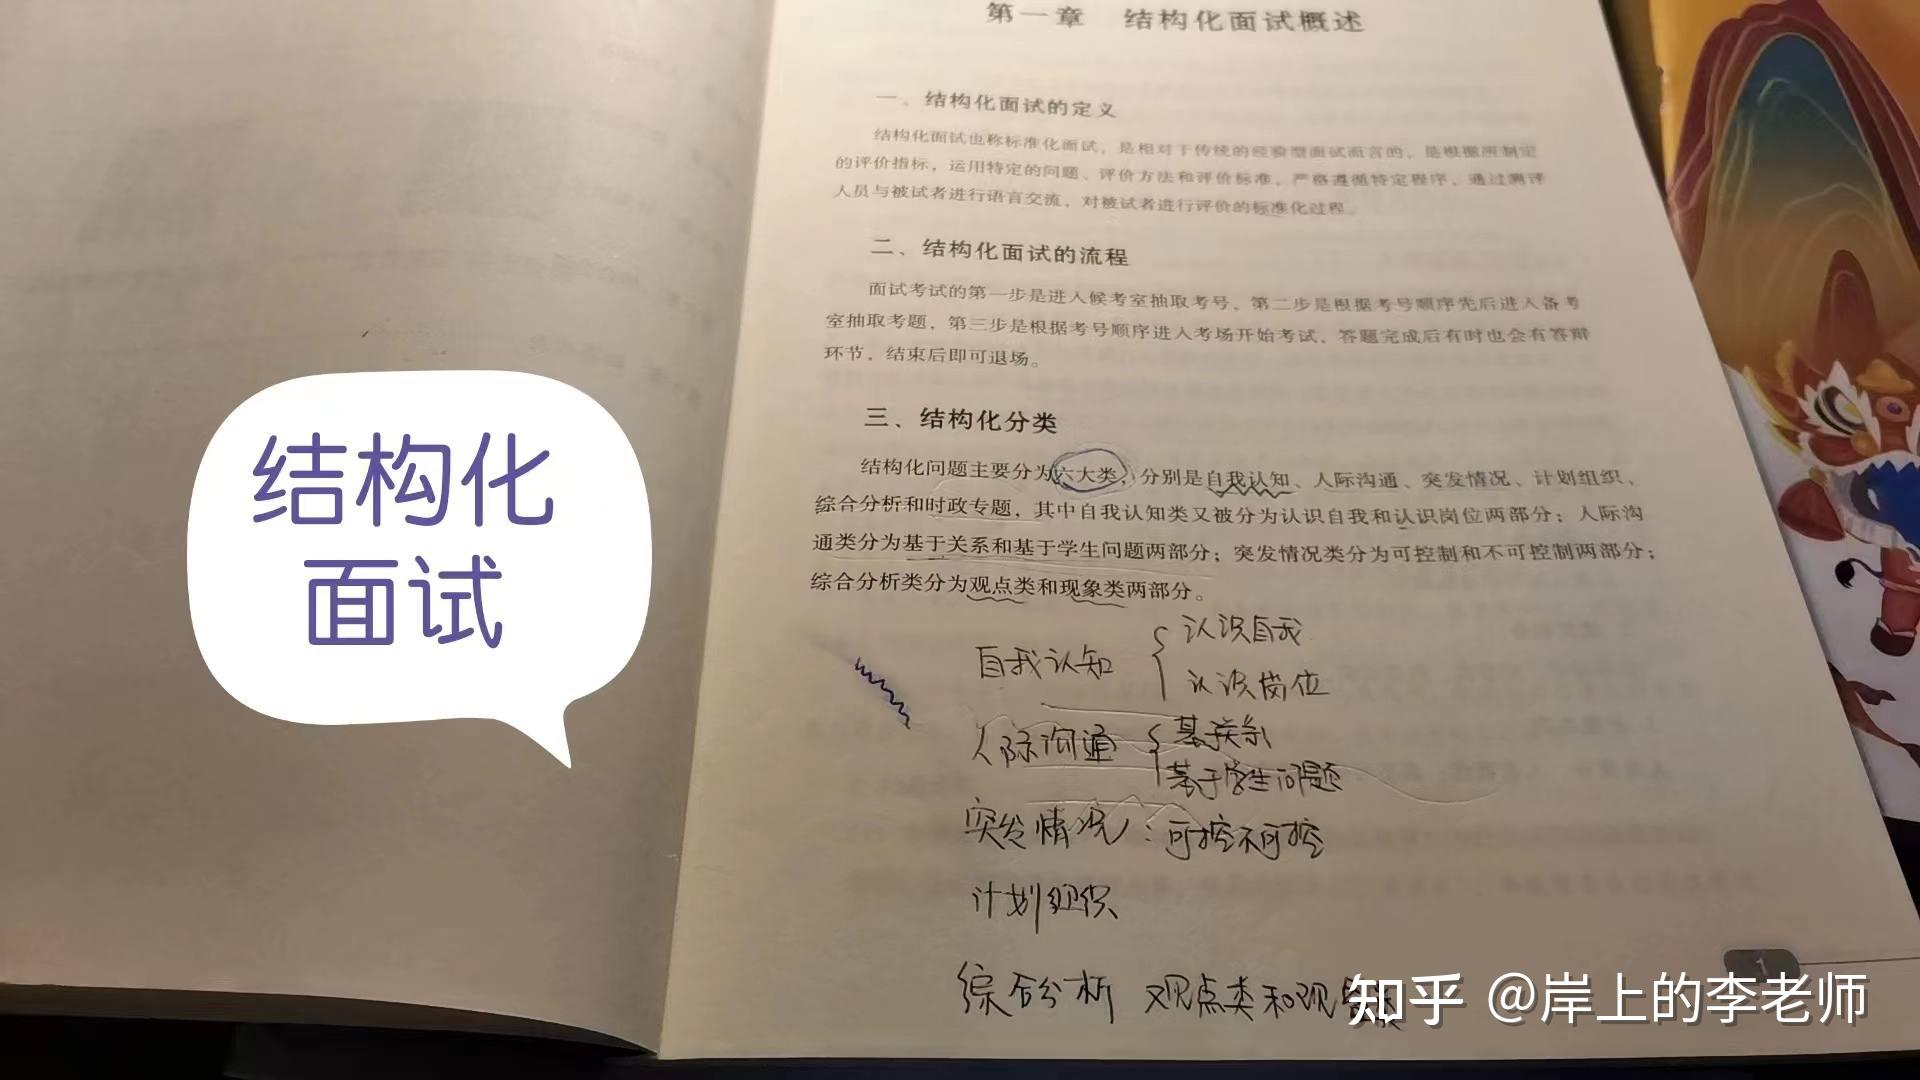 第一章 结构化面试概述
一、结构化面试的定义
结构化面试也称标准化面试，是相对于传统的经验型面试而言的，是根据所制定
的评价指标，运用特定的问题、评价方法和评价标准，严格遵循特定程序，通过测评
人员与被试者进行语言交流，对被试者进行评价的标准化过程。
二、结构化面试的流程
面试考试的第一步是进入候考室抽取考号，第二步是根据考号顺序先后进入备考
室抽取考题，第三步是根据考号顺序进入考场开始考试，答题完成后有时也会有答辩
环节，结束后即可退场。
三、结构化分类
结构化问题主要分为六大类，分别是自我认知、人际沟通、突发情况、计划组织、
综合分析和时政专题，其中自我认知类又被分为认识自我和认识岗位两部分；人际沟
通类分为基于关系和基于学生问题两部分；突发情况类分为可控制和不可控制两部分；
综合分析类分为观点类和现象类两部分。
自我认知
认识自我
认识岗位
人际沟通
基于关系
基于学生问题
突发情况：可控不可控
计划组织
综合分析 观点类和现
1
结构化
面试
知乎 @岸上的李老师